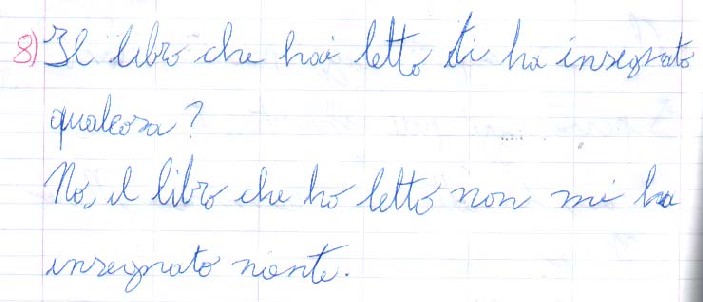 8) Il libro che hai letto ti ha insegnato
qualcosa?
No, il libro che ho letto non mi ha
insegnato niente.